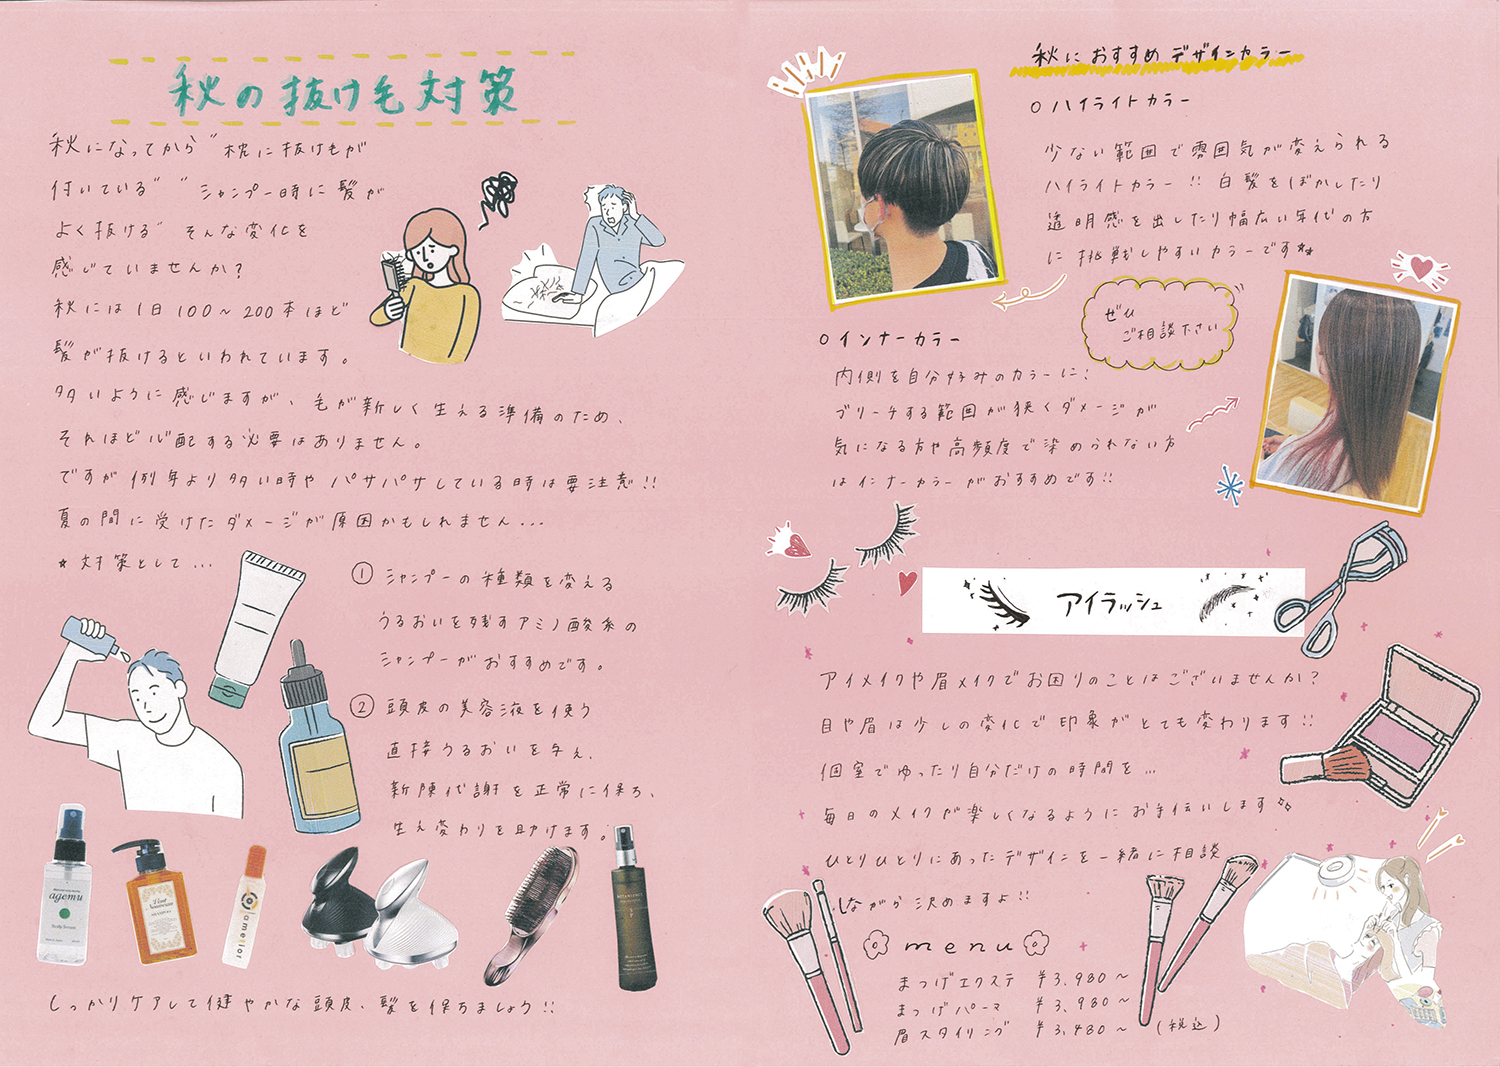 秋の抜け毛対策
秋になってから〝枕に抜け毛が
付いている〟〝シャンプー時に髪が
よく抜ける〟そんな変化を
感じていませんか?
秋には1日100～200本ほど
髪が抜けるといわれています。
多いように感じますが、毛が新しく生える準備のため、
それほど心配する必要はありません。
ですが例年より多い時やパサパサしている時は要注意!!
夏の間に受けたダメージが原因かもしれません...
★対策として...
① シャンプーの種類を変える
うるおいを残すアミノ酸系の
シャンプーがおすすめです。
② 頭皮の美容液を使う
直接うるおいを与え、
新陳代謝を正常に保ち、
生え変わりを助けます。
agemu
amelior
しっかりケアして健やかな頭皮、髪を保ちましょう!!
秋におすすめデザインカラー
○ハイライトカラー
少ない範囲で雰囲気が変えられる
ハイライトカラー!!白髪をぼかしたり
透明感を出したり幅広い年代の方
に挑戦しやすいカラーです★★
ぜひ
ご相談下さい
○インナーカラー
内側を自分好みのカラーに!
ブリーチする範囲が狭くダメージが
気になる方や高頻度で染められない方
はインナーカラーがおすすめです!!
アイラッシュ
アイメイクや眉メイクでお困りのことはございませんか?
目や眉は少しの変化で印象がとても変わります!!
個室でゆったり自分だけの時間を...
毎日のメイクが楽しくなるようにお手伝いします☆☆
ひとりひとりにあったデザインを一緒に相談
しながら決めますよ!!
menu
まつげエクステ ¥3,980～
まつげパーマ ¥3,980～
眉スタイリング ¥3,480～ (税込)